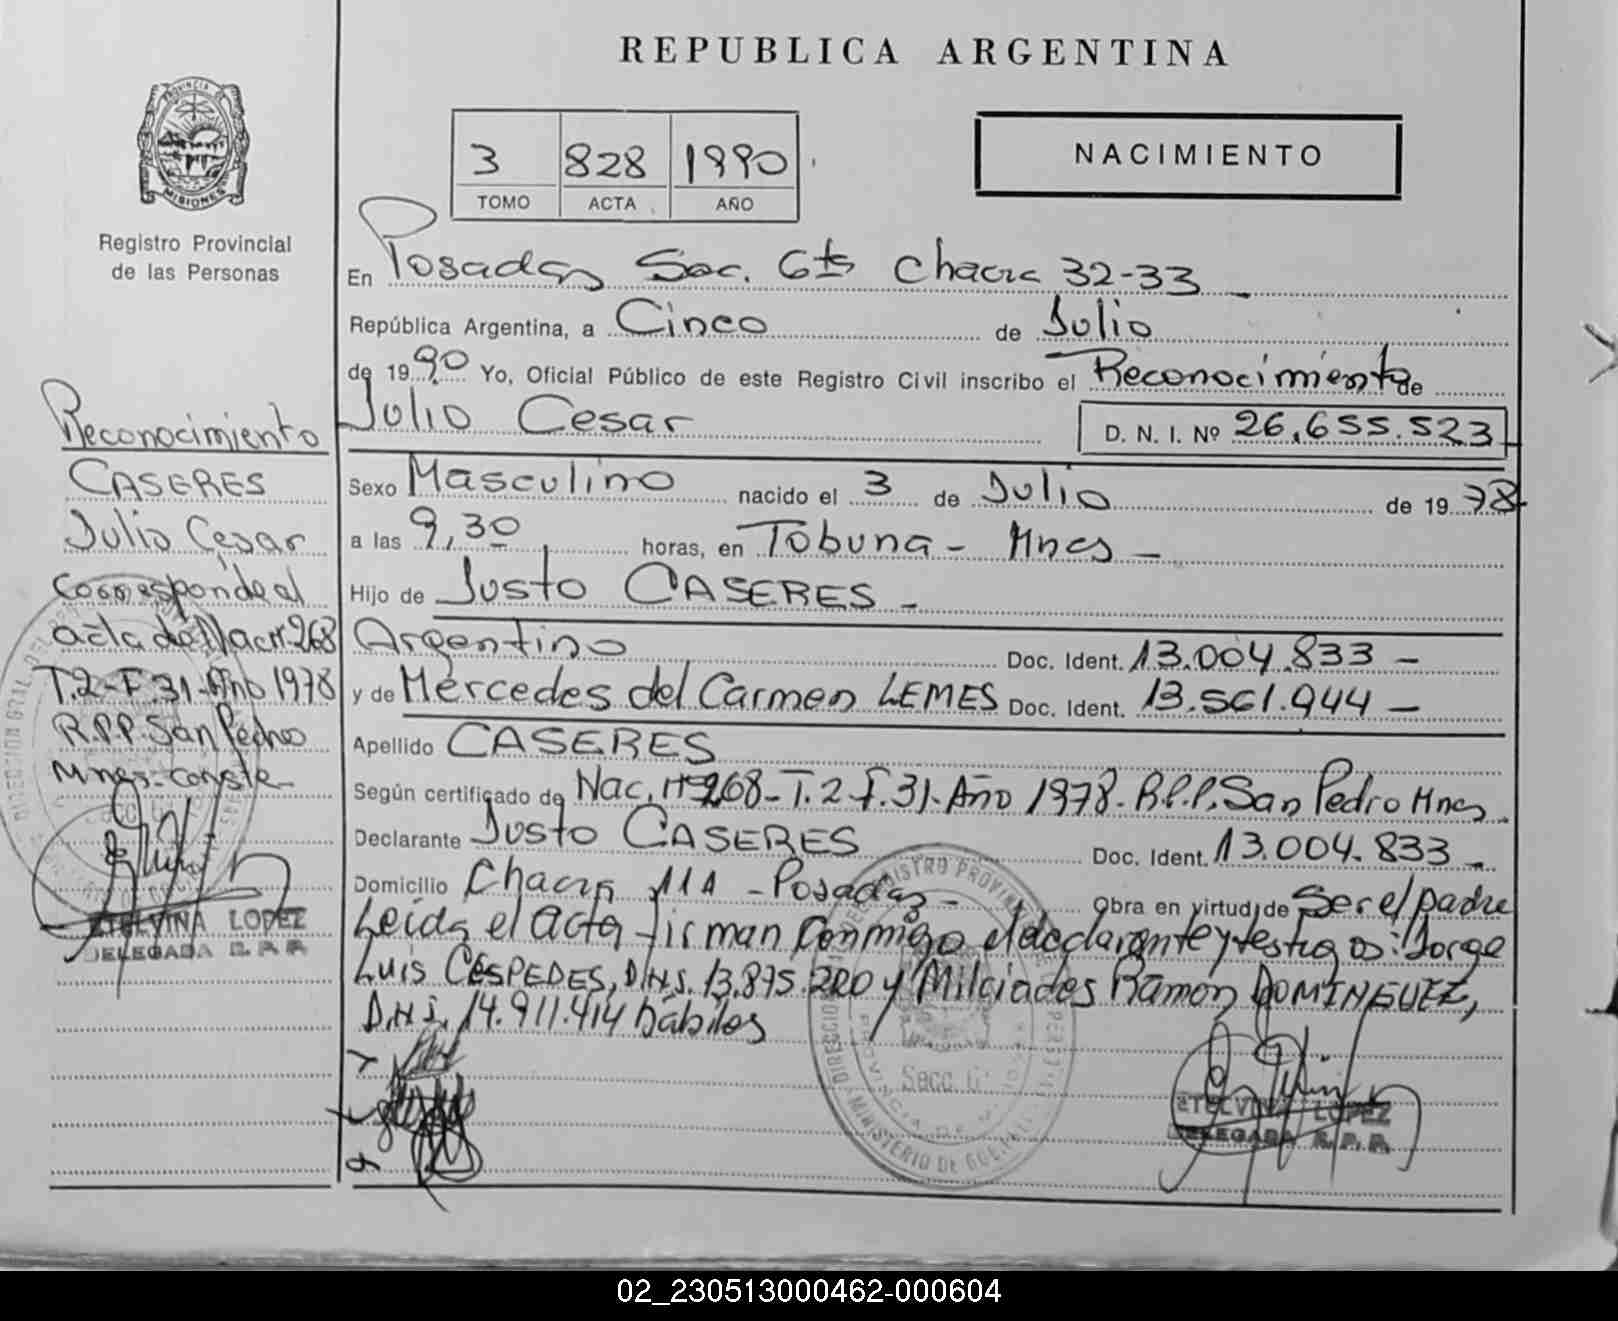 REPUBLICA ARGENTINA
PROVINCIA DE
MISIONES
Registro Provincial
de las Personas
3 828 1990
TOMO ACTA AÑO
NACIMIENTO
En Posadas Sec. 6ta Chacra 32-33
República Argentina, a Cinco de Julio
de 1990 Yo, Oficial Público de este Registro Civil inscribo el Reconocimiento de
Julio Cesar D. N. I. Nº 26.655.523
Sexo Masculino nacido el 3 de Julio de 1978
a las 9,30 horas, en Tobuna - Mnes -
Hijo de Justo CASERES -
Argentino Doc. Ident. 13.004.833 -
y de Mercedes del Carmen LEMES Doc. Ident. 13.561.944 -
Apellido CASERES
Según certificado de Nac. Nº 268-T.2-F.31-Año 1978-R.P.P. San Pedro Mnes.
Declarante Justo CASERES Doc. Ident. 13.004.833 -
Domicilio Chacra 11A - Posadas - Obra en virtud de Ser el padre
Leida el Acta firman conmigo el declarante y testigos: Jorge
Luis CESPEDES, D.N.I. 13.895.220 y Milciades Ramon DOMINGUEZ,
D.N.I. 14.911.414 hábiles
Reconocimiento
CASERES
Julio Cesar
Corresponde al
acta de Nac Nº 268
T.2-F.31-Año 1978
R.P.P. San Pedro
Mnes-conste-
ETELVINA LOPEZ
DELEGADA R.P.P.
Secc. 6
ETELVINA LOPEZ
DELEGADA R.P.P.
02_230513000462-000604